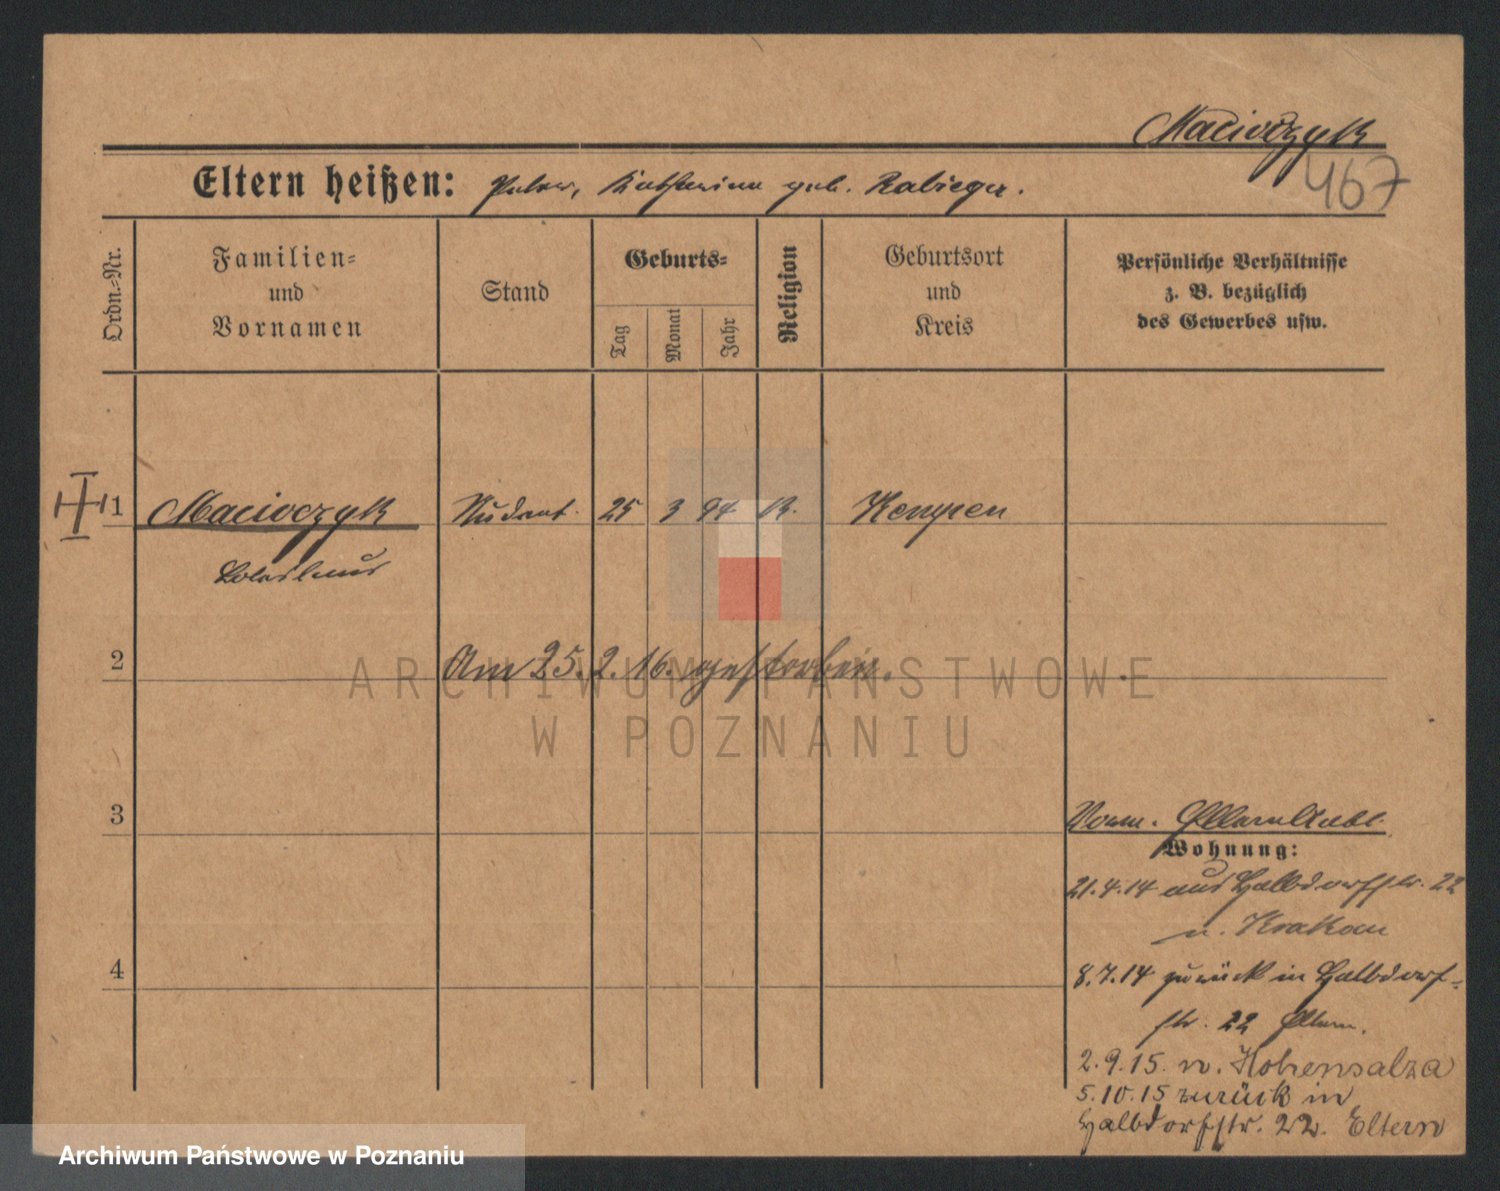 Macioczyk
467
Eltern heißen: Peter, Katharina geb. Rabiega.
Ordn.-Nr.
Familien-
und
Vornamen
Stand
Geburts-
Tag
Monat
Jahr
Religion
Geburtsort
und
Kreis
Persönliche Verhältnisse
z. B. bezüglich
des Gewerbes usw.
1 Macioczyk Student 25 3 94 K. Kempen
Boleslaus
2 Am 25. 2. 16. gestorben.
3
Eltern
Wohnung:
21.4.14 aus Halbdorfstr. 22
n. Krakau
4
8.7.14 zurück in Halbdorf-
str. 22 Eltern.
2.9.15. n. Hohensalza
5.10.15 zurück in
Halbdorfstr. 22. Eltern
ARCHIWUM PAŃSTWOWE
W POZNANIU
Archiwum Państwowe w Poznaniu